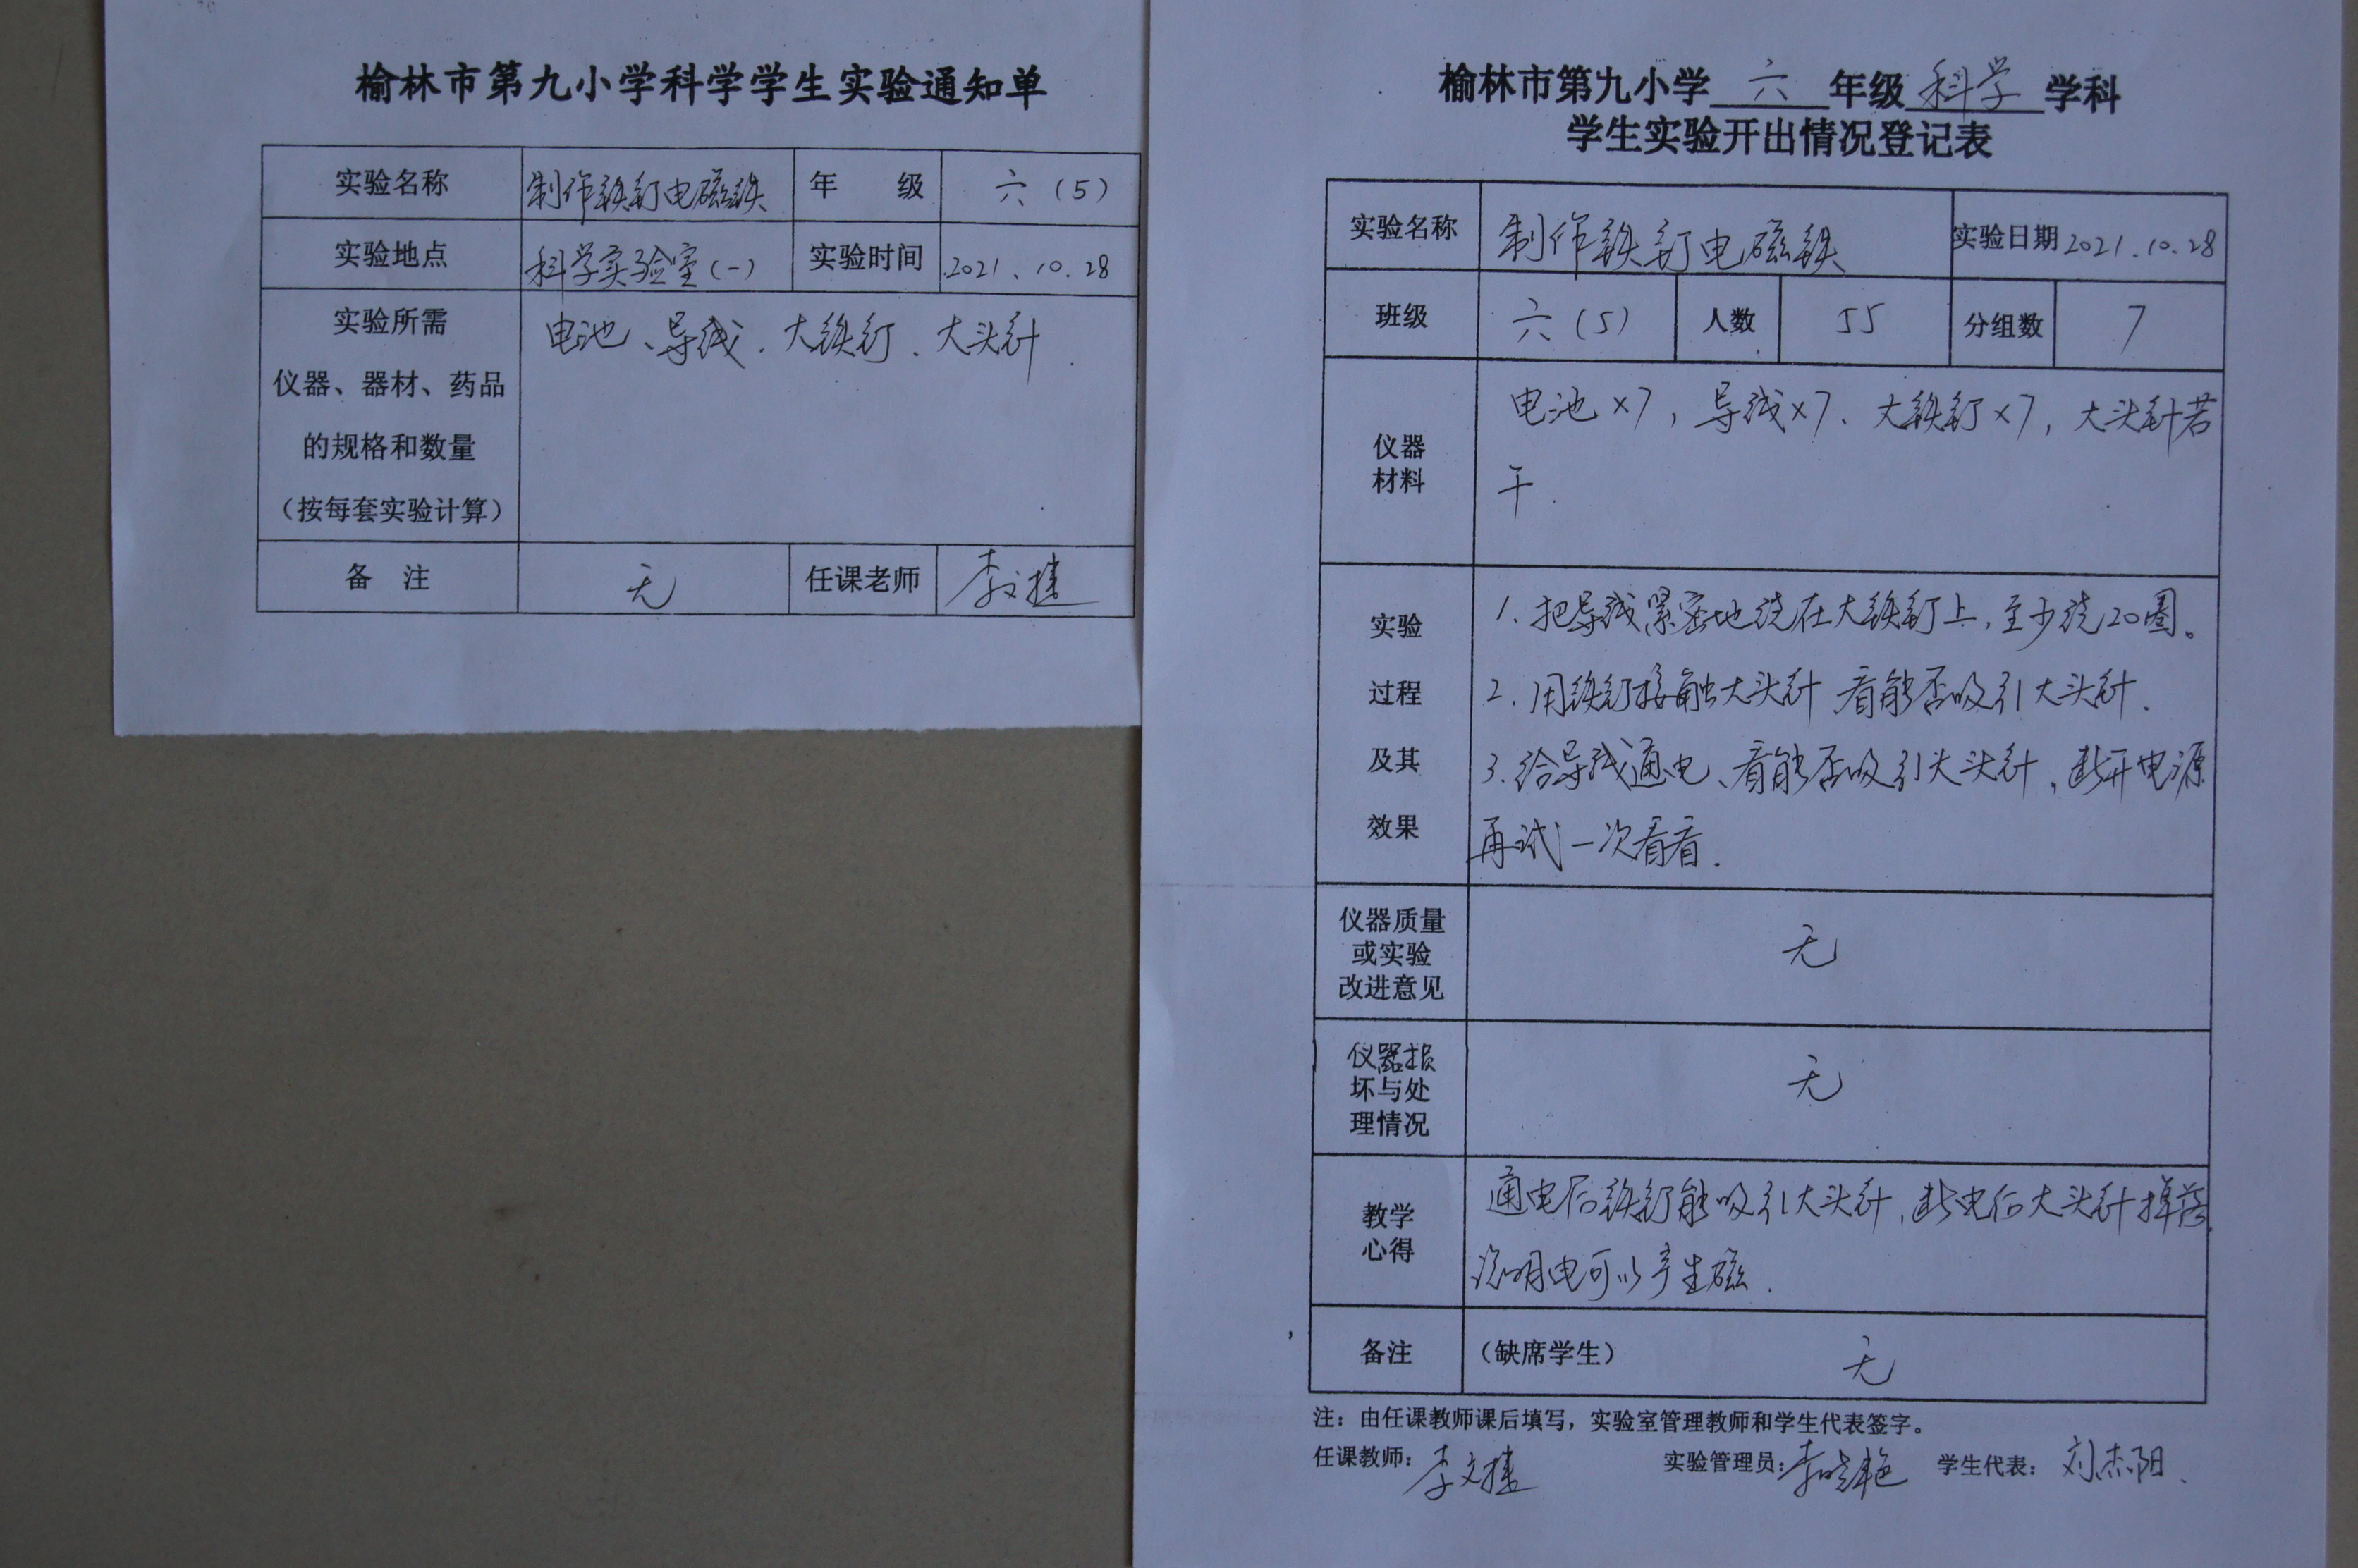 榆林市第九小学科学学生实验通知单
实验名称 制作铁钉电磁铁 年 级 六（5）
实验地点 科学实验室（一） 实验时间 2021.10.28
实验所需
仪器、器材、药品
的规格和数量
（按每套实验计算）
电池、导线、大铁钉、大头针
备 注 无 任课老师 李文捷
榆林市第九小学 六 年级 科学 学科
学生实验开出情况登记表
实验名称 制作铁钉电磁铁 实验日期 2021.10.28
班级 六（5） 人数 55 分组数 7
仪器
材料
电池×7，导线×7、大铁钉×7，大头针若
干.
实验
过程
及其
效果
1、把导线紧密地绕在大铁钉上，至少绕20圈。
2、用铁钉接触大头针 看能否吸引大头针.
3、给导线通电、看能否吸引大头针，断开电源
再试一次看看.
仪器质量
或实验
改进意见
无
仪器损
坏与处
理情况
无
教学
心得
通电后铁钉能吸引大头针，断电后大头针掉落，
说明电可以产生磁.
备注 （缺席学生） 无
注：由任课教师课后填写，实验室管理教师和学生代表签字。
任课教师：李文捷 实验管理员：李晓艳 学生代表：刘杰阳